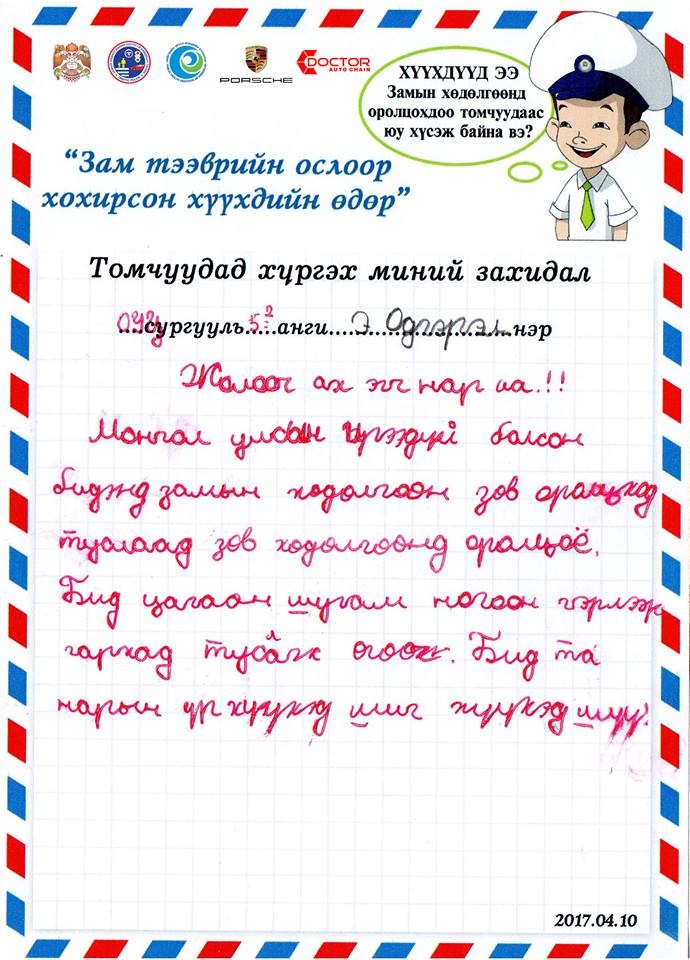 PORSCHE
DOCTOR
AUTO CHAIN
ХҮҮХДҮҮД ЭЭ
Замын хөдөлгөөнд
оролцохдоо томчуудаас
юу хүсэж байна вэ?
“Зам тээврийн ослоор
хохирсон хүүхдийн өдөр”
Томчуудад хүргэх миний захидал
....сургууль 5.....анги.... Э Одгэрэл....нэр
Жолооч ах эгч нар аа.!!
Монгол улсын иргэдүүд болсон
биднд замын ходолгоон зов оролцход
туслаад зов ходолгоонд оролцоё.
Бид цагаан шугам ногоон гэрлээр
гархад тусалж огоох. Бид та
нарын үр хүүхэд шиг хүүхэд шүү.
2017.04.10